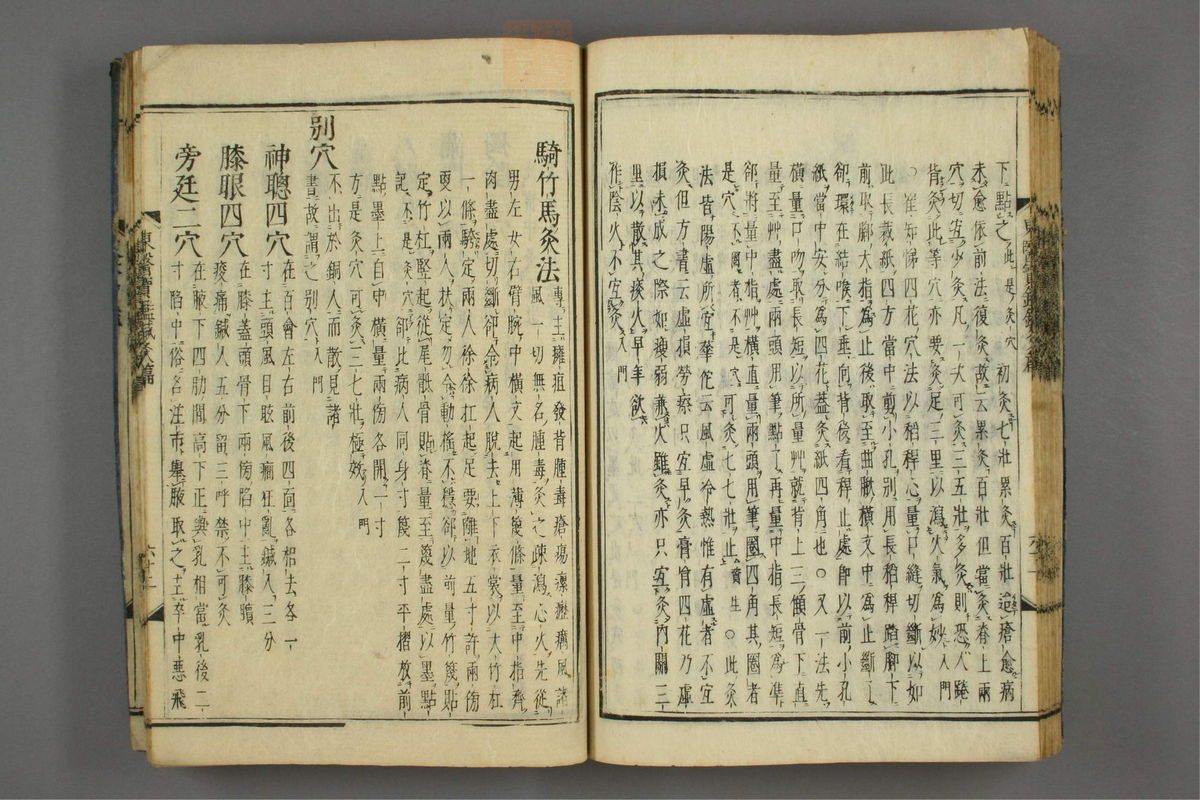 下點之此是灸穴初灸七壯累灸百壯迨瘡愈病
未愈依前法復灸故云累灸百壯但當灸脊上兩
穴切宜少灸凡一次可灸三五壯多灸則恐人踡
背灸此等穴亦要灸足三里以瀉火氣爲妙入門
○崔知悌四花穴法以稻稈心量口縫切斷以如
此長裁紙四方當中剪小孔別用長稻稈踏脚下
前取脚大指爲止後取至曲䐐橫文中爲止斷了
却環在結喉下垂向背後看稈止處卽以前小孔
紙當中安分爲四花盖灸紙四角也○又一法先
橫量口吻取長短以所量艸就背上三顀骨下直
量至艸盡處兩頭用筆點了再量中指長短爲準
却將量中指艸橫直量兩頭用筆圈四角其圈者
是穴不圈者不是穴可灸七七壯止資生○此灸
法皆陽虛所宜華佗云風虛冷熱惟有虛者不宜
灸但方書云虛損勞瘵只宜早灸膏肓四花乃虛
損未成之際如瘦弱兼火雖灸亦只宜灸內關三
里以散其痰火早年欲
作陰火不宜灸入門
騎竹馬灸法
專主癰疽發背腫毒瘡瘍瘰癧癘風諸
風一切無名腫毒灸之疎瀉心火先從
男左女右臂腕中橫文起用薄篾條量至中指齊
肉盡處切斷却令病人脫去上下衣裳以大竹杠
一條騎定兩人徐徐扛起足要離地五寸許兩傍
更以兩人扶定勿令動搖不穩却以前量竹篾貼
定竹杠竪起從尾骶骨貼脊量至篾盡處以墨點
記不是灸穴却比病人同身寸篾二寸平摺放前
點墨上自中橫量兩傍各開一寸
方是灸穴可灸三七壯極妙入門
別穴
不出於銅人而散見諸
書故謂之別穴入門
神聰四穴
在百會左右前後四面各相去各一
寸主頭風目眩風癎狂亂鍼入三分
膝眼四穴
在膝蓋頭骨下兩傍陷中主膝髕
痠痛鍼入五分留三呼禁不可灸
旁廷二穴
在腋下四肋間高下正與乳相當乳後二
寸陷中俗名注市擧腋取之主卒中惡飛
東醫寶鑑鍼灸篇